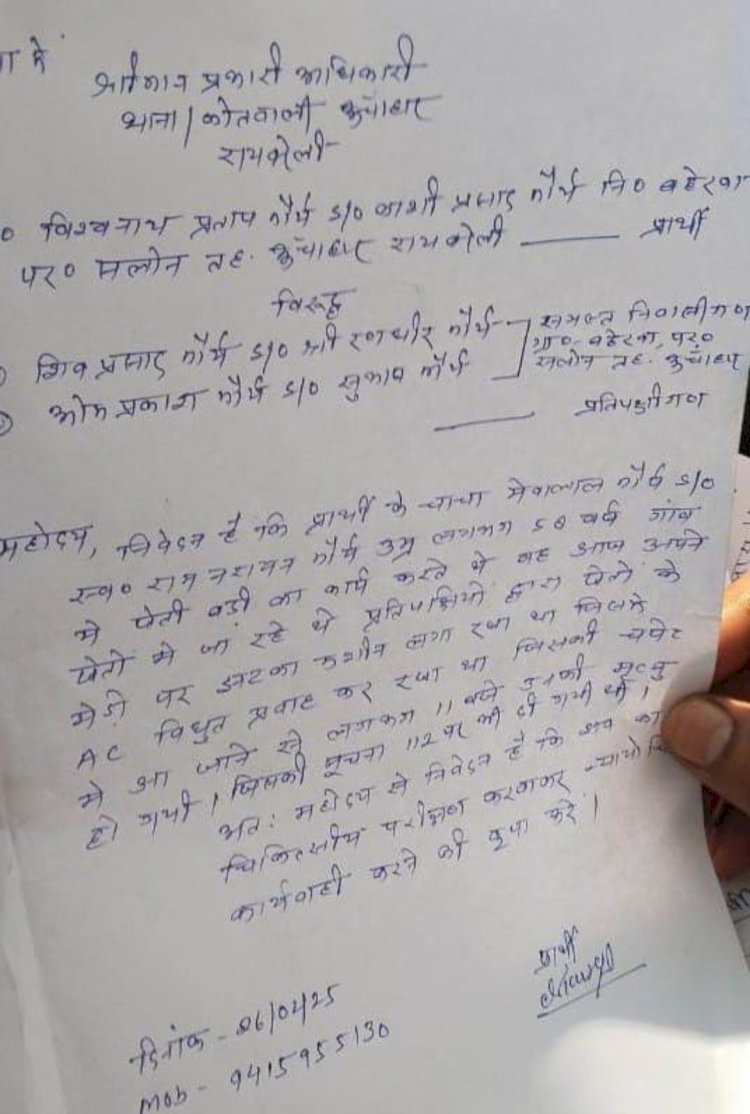 में
श्रीमान प्रभारी अधिकारी
थाना/कोतवाली ऊँचाहार
रायबरेली
विश्वनाथ प्रताप मौर्य S/O काशी प्रसाद मौर्य नि० बहेरवा
पर० सलोन तह. ऊँचाहार रायबरेली ——— प्रार्थी
विरूद्ध
शिव प्रसाद मौर्य S/O श्री रणधीर मौर्य समस्त निवासीगण
ग्रा०- बहेरवा, पर०
ओम प्रकाश मौर्य S/O सुभाष मौर्य सलोन तह. ऊँचाहार
——— प्रतिपक्षीगण
महोदय, निवेदन है कि प्रार्थी के चाचा मेवालाल मौर्य S/O
स्व० राम नरायन मौर्य उम्र लगभग 58 वर्ष गांव
मे खेती बड़ी का कार्य करते थे वह आज अपने
खेतो मे जा रहे थे प्रतिपक्षियो द्वारा खेतो के
मेड़ो पर झटका मशीन लगा रखा था जिसमे
AC विधुत प्रवाह कर रखा था जिसकी चपेट
मे आ जाने से लगभग 11 बजे उनकी मृत्यु
हो गयी। जिसकी सूचना 112 पर भी दी गयी थी।
अतः महोदय से निवेदन है कि शव का
चिकित्सीय परीक्षण करवाकर
कार्यवाही करने की कृपा करे।
प्रार्थी
दिनांक - 26/04/25
Mob - 9415955130